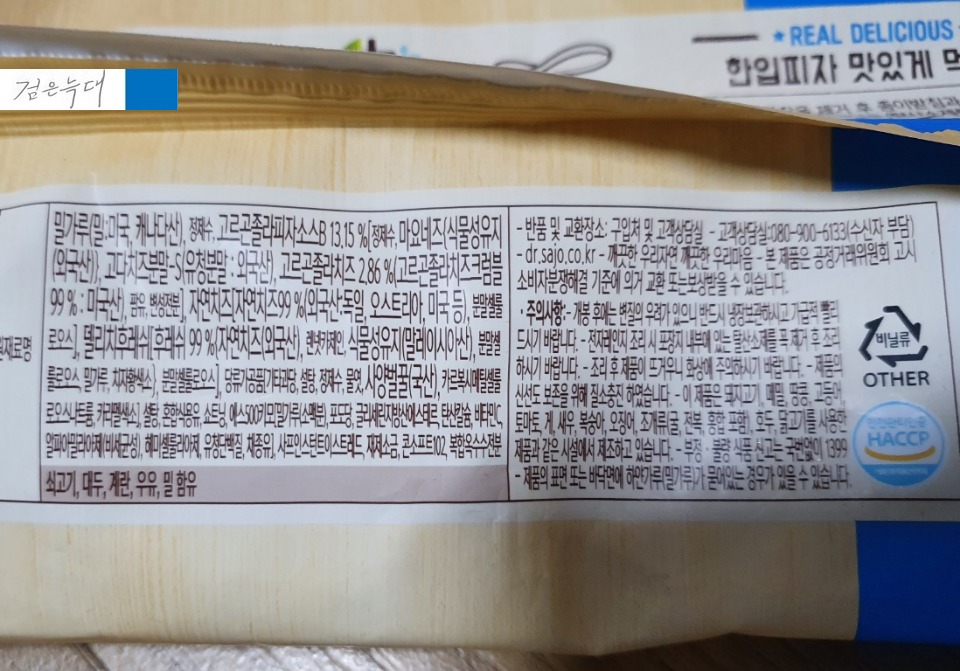 ★ REAL DELICIOUS
한입피자 맛있게 먹
검은늑대
밀가루(밀:미국, 캐나다산), 정제수, 고르곤졸라피자소스B 13.15 %[정제수, 마요네즈(식물성유지
(외국산), 고다치즈분말-S(유청분말 : 외국산), 고르곤졸라치즈 2.86 %(고르곤졸라치즈크럼블
99 % : 미국산), 팜유, 변성전분], 자연치즈[자연치즈99 %(외국산:독일, 오스트리아, 미국 등), 분말셀룰
로오스], 델리치후레쉬[후레쉬 99 %(자연치즈(외국산), 렌넷카제인, 식물성유지(말레이시아산), 분말셀
룰로오스, 밀가루, 치자황색소), 분말셀룰로오스], 당류가공품(기타과당, 설탕, 정제수, 물엿, 사양벌꿀(국산), 카르복시메틸셀룰
로오스나트륨, 카라멜색소), 설탕, 혼합식용유, 쇼트닝, 에스500키모밀가루(소맥분), 포도당, 글리세린지방산에스테르, 탄산칼슘, 비타민C,
알파아밀라아제(비세균성), 헤미셀룰라아제, 유청단백질, 채종유], 사프인스턴트이스트레드, 재제소금, 콘소프트102, 복합옥수수전분
원재료명
쇠고기, 대두, 계란, 우유, 밀 함유
- 반품 및 교환장소: 구입처 및 고객상담실 - 고객상담실:080-900-6133(수신자 부담)
- dr.sajo.co.kr - 깨끗한 우리자연 깨끗한 우리마음 - 본 제품은 공정거래위원회 고시
소비자분쟁해결 기준에 의거 교환 또는 보상받을 수 있습니다.
· 주의사항:- 개봉 후에는 변질의 우려가 있으니 반드시 냉장보관하시고 가급적 빨리
드시기 바랍니다. - 전자레인지 조리 시 포장지 내부에 있는 탈산소제를 꼭 제거 후 조리
하시기 바랍니다. - 조리 후 제품이 뜨거우니 화상에 주의하시기 바랍니다. - 제품의
신선도 보존을 위해 질소충진 하였습니다. - 이 제품은 돼지고기, 메밀, 땅콩, 고등어,
토마토, 게, 새우, 복숭아, 오징어, 조개류(굴, 전복, 홍합 포함), 호두, 닭고기를 사용한
제품과 같은 시설에서 제조하고 있습니다. - 부정·불량 식품 신고는 국번없이 1399
- 제품의 표면 또는 바닥면에 하얀가루(밀가루)가 묻어있는 경우가 있을 수 있습니다.
비닐류
OTHER
안전관리인증
HACCP